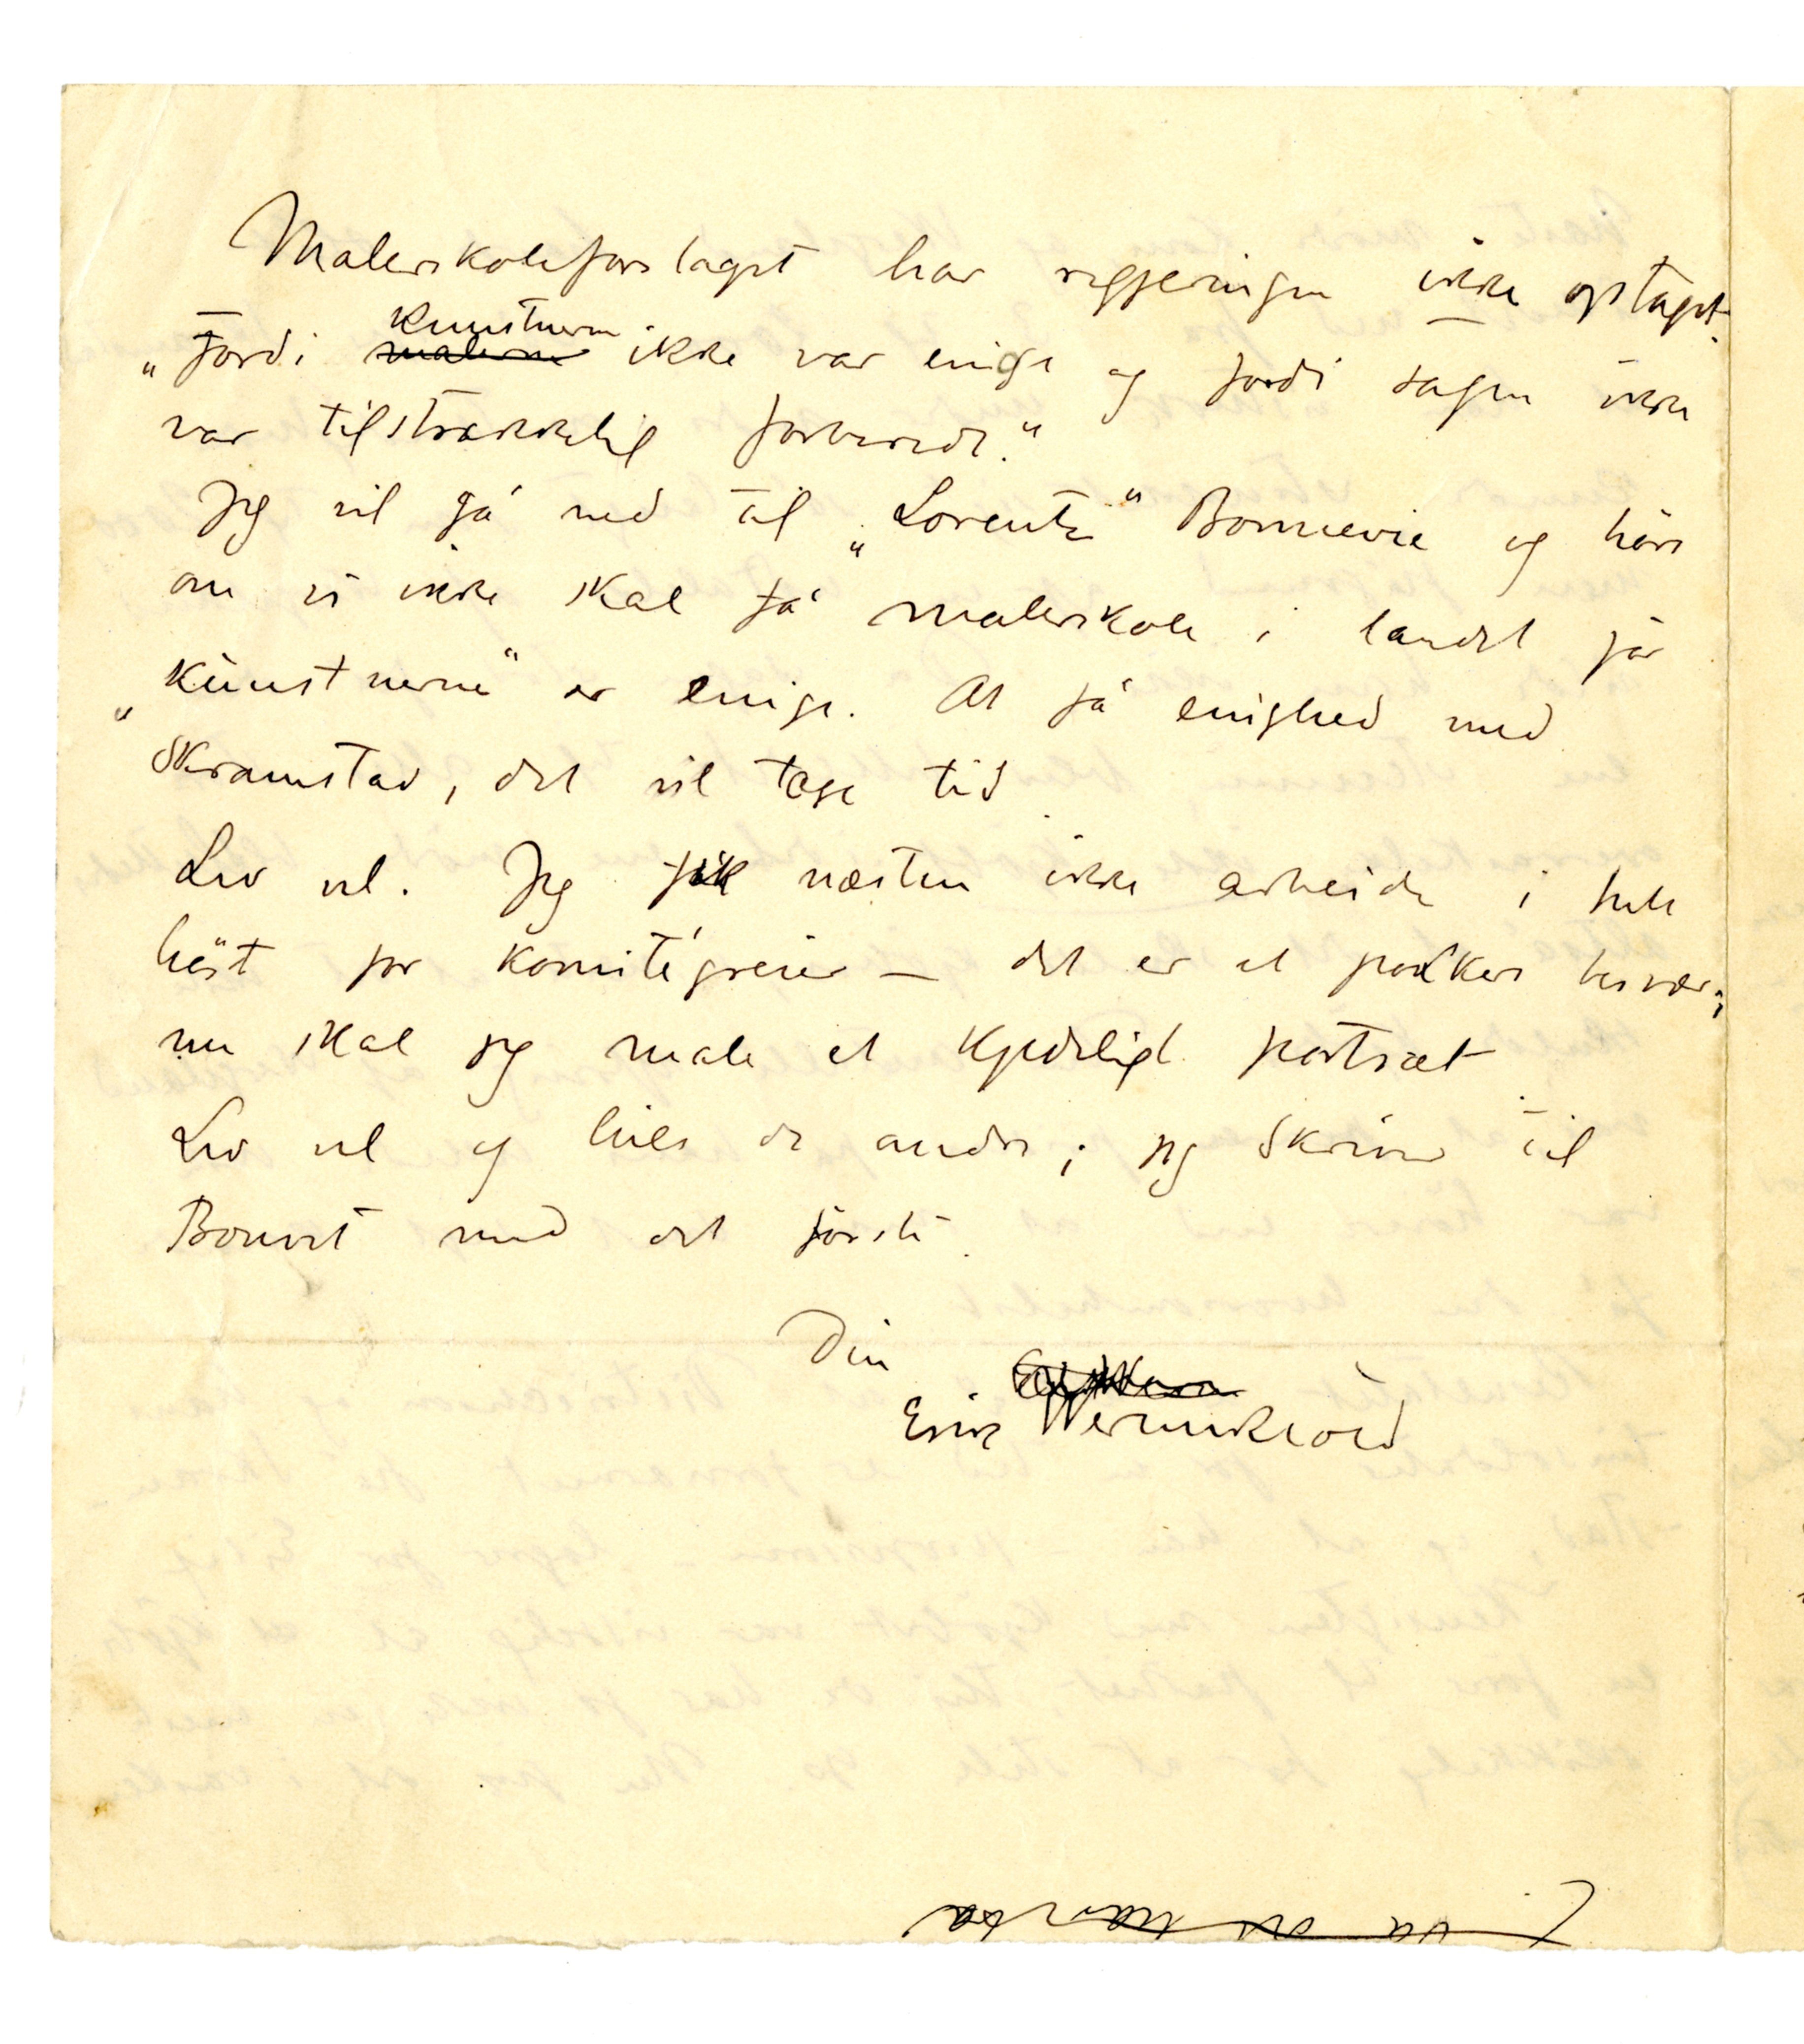 Malerskoleforslaget har regjeringen ikke optaget.
„Fordi kunstnerne ikke var enige og fordi sagen ikke
var tilstrækkelig forberedt.“
Jeg vil gå ned til „Lorentz“ Bonnevie og høre
om vi ikke skal få malerskole i landet før
„Kunstnerne“ er enige. At få enighed med
Skramstad, det vil tage tid.
Lev vel. Jeg fik næsten ikke arbeide i hele
høst for komitégreier – det er et pokkers besvær;
nu skal jeg male et kjedeligt portræt.
Lev vel og hils de andre; jeg skriver til
Bonnet med det første.
Din
Erik Werenskiold